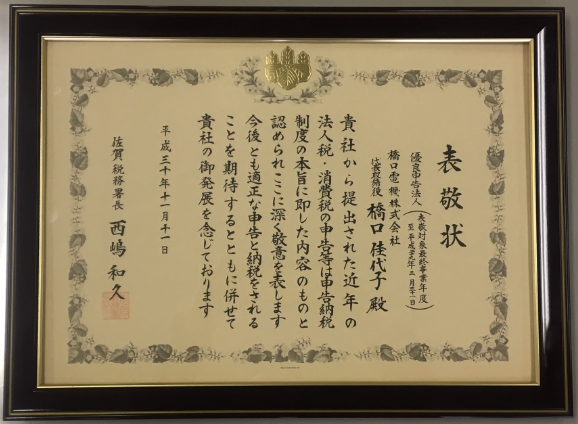 表敬状
優良申告法人
(表敬対象最終事業年度
橋口電機株式会社
代表取締役 橋口佳代子 殿
貴社から提出された近年の
法人税・消費税の申告等は申告納税
制度の本旨に即した内容のものと
認められここに深く敬意を表します
今後とも適正な申告と納税をされる
ことを期待するとともに併せて
貴社の御発展を念じております
平成三十年十一月十一日
佐賀税務署長 西嶋和久